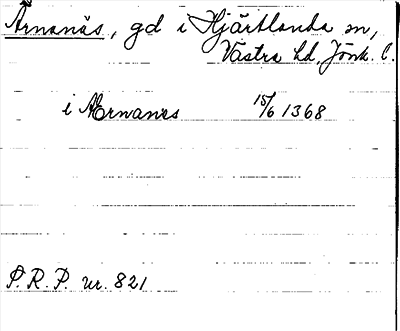 Ärnanäs, gd i Hjärtlanda sn,
Västra hd, Jönk. l.
i Ærnanæs 15/6 1368
P.R.P. nr. 821